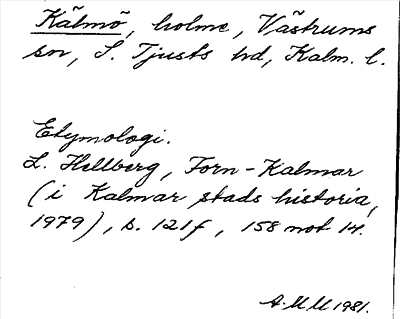 Kälmö, holme, Västrums
sn, S. Tjusts hd, Kalm. l.
Etymologi.
L. Hellberg, Forn-Kalmar
(i Kalmar stads historia,
1979), s. 121f, 158 not 14.
A.M.M 1981.